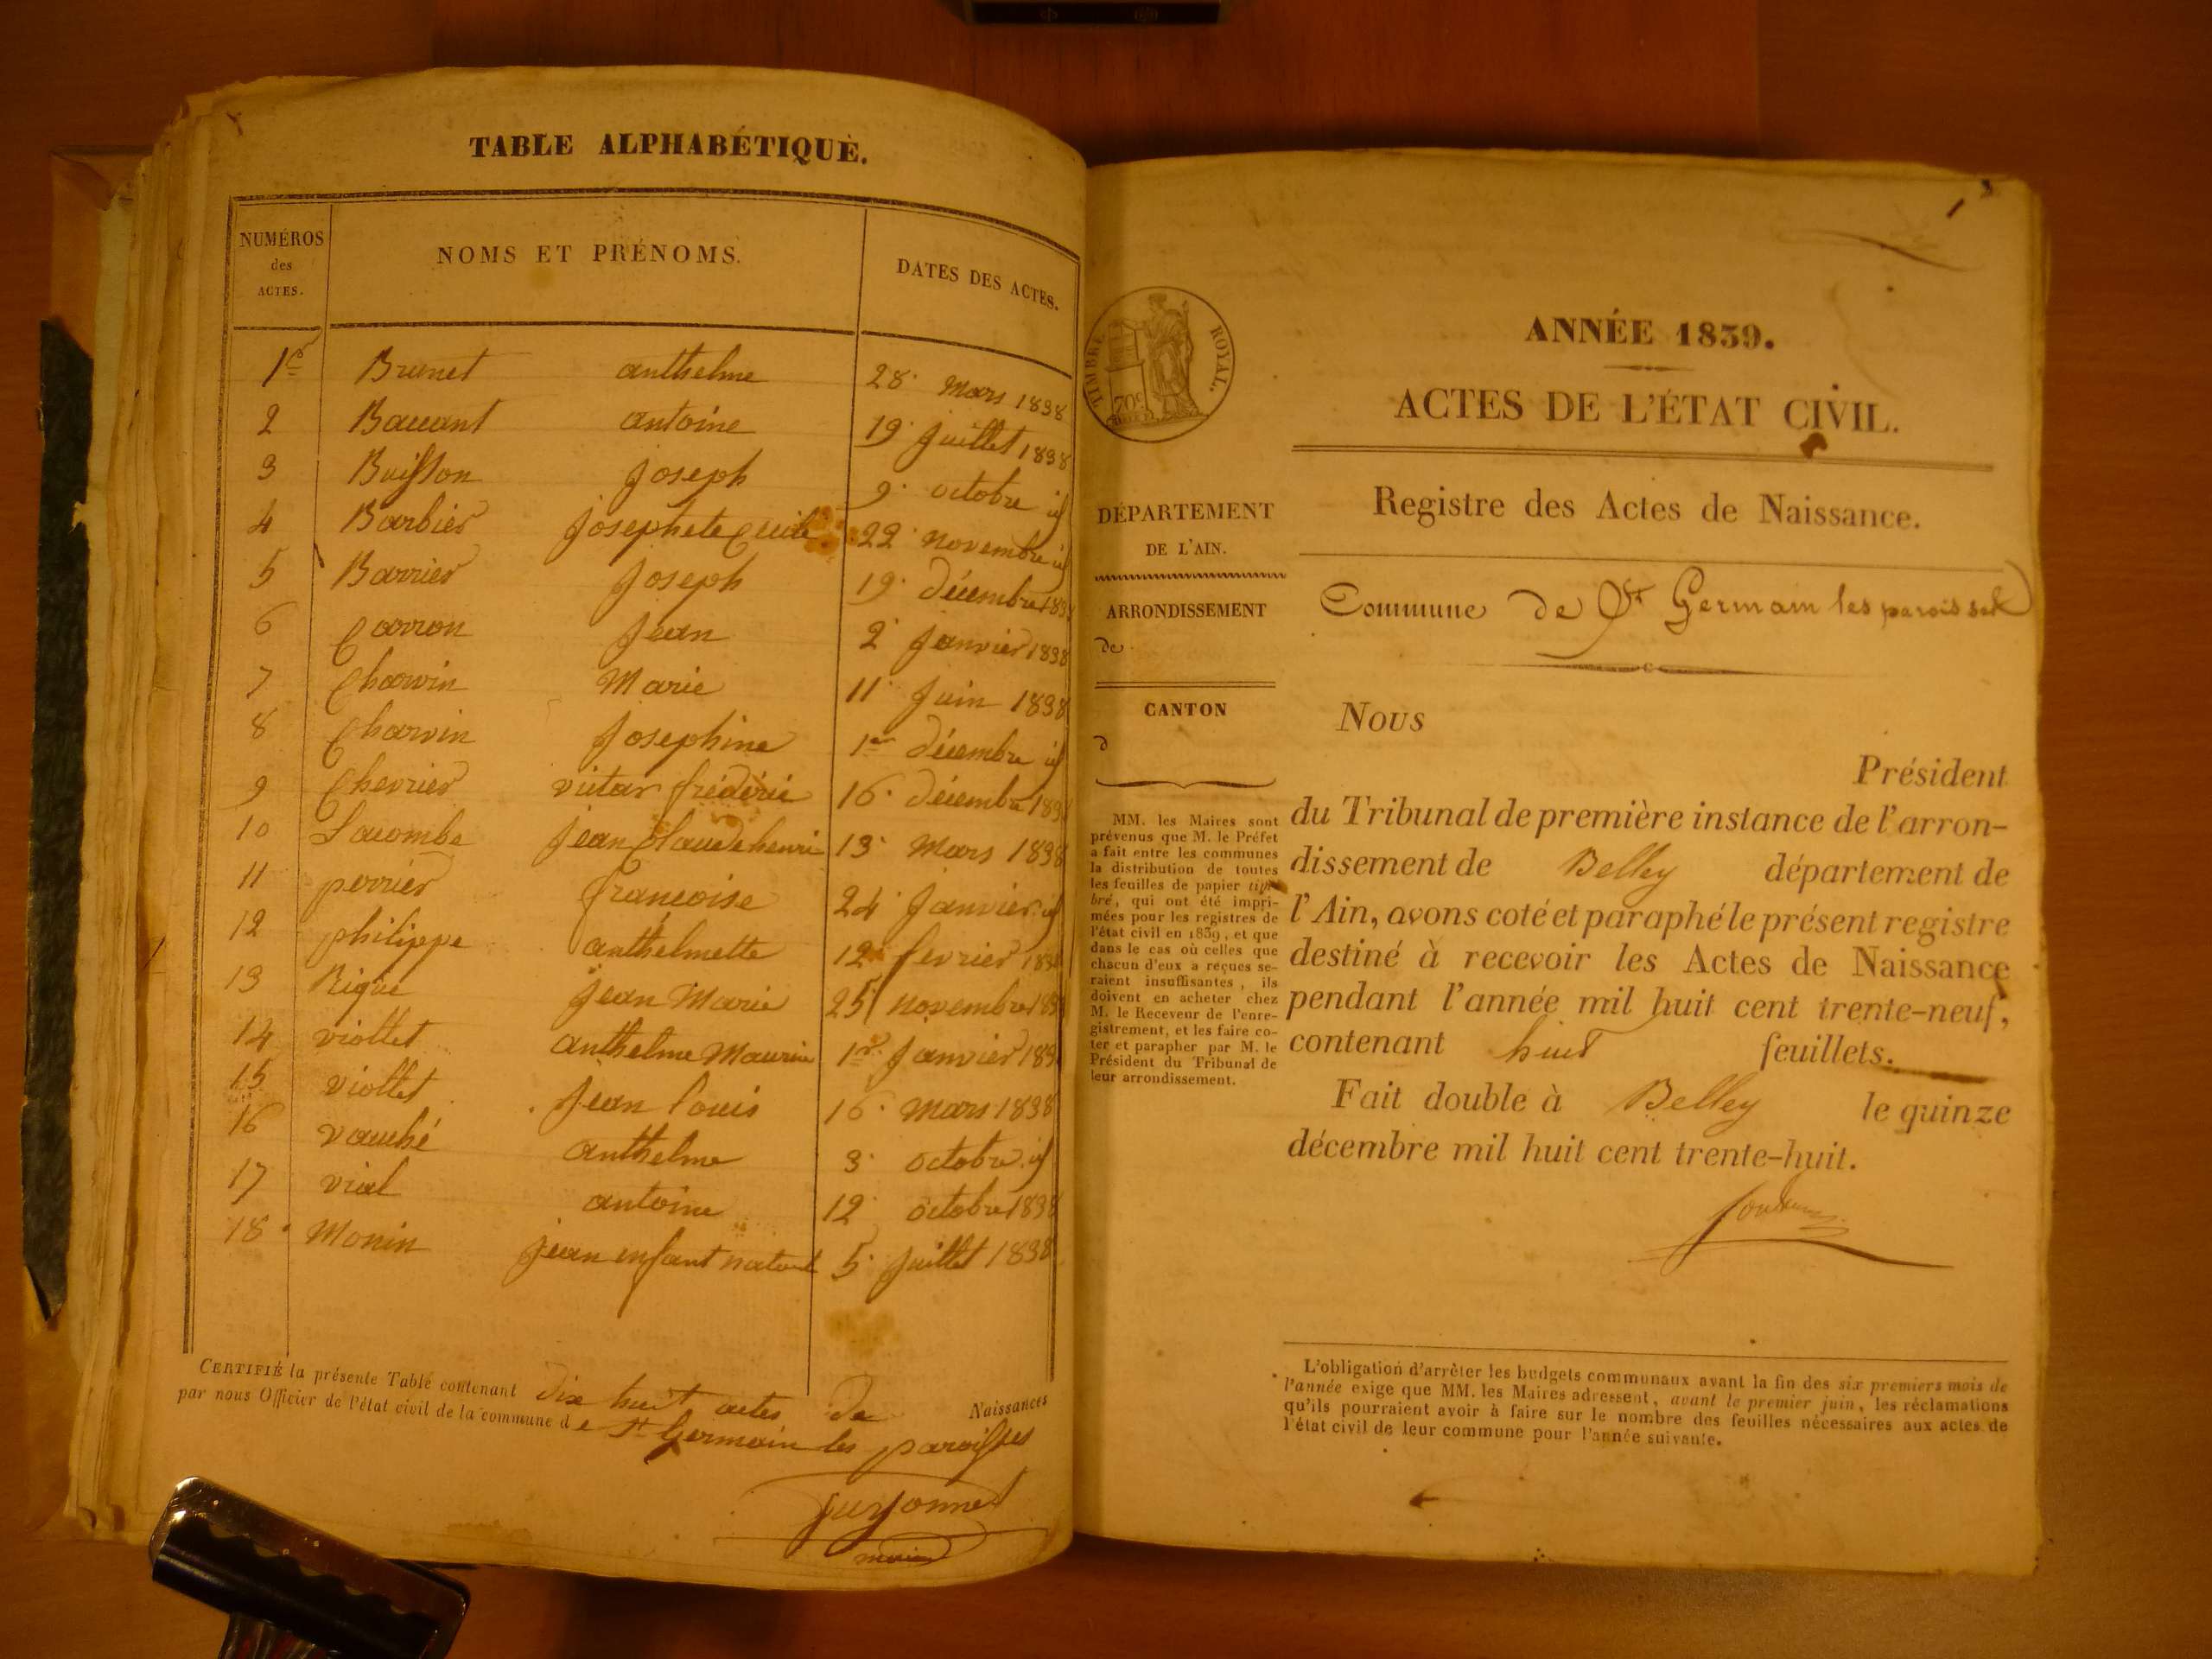 TABLE ALPHABÉTIQUE.
NUMÉROS des ACTES. NOMS ET PRÉNOMS. DATES DES ACTES.
1er Brunet anthelme 28. Mars 1838
2 Bauant antoine 19. Juillet 1838
3 Buisson Joseph 9. octobre id
4 Barbier Josephete 22. novembre id
5 Barrier Joseph 19. décembre 1838
6 Carron Jean 2. Janvier 1838
7 Charvin Marie 11. Juin 1838
8 Charvin Josephine 1er décembre id
9 Chevrier victor frédéric 16. décembre 1838
10 Lacombe Jean Claude henri 13. Mars 1838
11 perrier françoise 24. Janvier id
12 philippe anthelmette 12. fevrier 1838
13 Rigue Jean Marie 25. novembre 1838
14 viollet anthelme Maurice 1er Janvier 1838
15 viollet Jean louis 16. Mars 1838
16 vauché anthelme 3. octobre id
17 vial antoine 12. octobre 1838
18. Monin Jean enfant naturel 5. Juillet 1838
CERTIFIÉ la présente Table contenant dix huit actes de Naissances
par nous Officier de l'état civil de la commune de St Germain les paroisses
maire
1er
TIMBRE ROYAL.
70c
ANNÉE 1839.
ACTES DE L'ÉTAT CIVIL.
Registre des Actes de Naissance.
DÉPARTEMENT
DE L'AIN.
ARRONDISSEMENT
de
CANTON
d
MM. les Maires sont
prévenus que M. le Préfet
a fait entre les communes
la distribution de toutes
les feuilles de papier tim-
bré, qui ont été impri-
mées pour les registres de
l'état civil en 1839, et que
dans le cas où celles que
chacun d'eux a reçues se-
raient insuffisantes, ils
doivent en acheter chez
M. le Receveur de l'enre-
gistrement, et les faire co-
ter et parapher par M. le
Président du Tribunal de
leur arrondissement.
Commune de St Germain les paroisses
Nous
Président
du Tribunal de première instance de l'arron-
dissement de Belley département de
l'Ain, avons coté et paraphé le présent registre
destiné à recevoir les Actes de Naissance
pendant l'année mil huit cent trente-neuf,
contenant huit feuillets.
Fait double à Belley le quinze
décembre mil huit cent trente-huit.
L'obligation d'arrêter les budgets communaux avant la fin des six premiers mois de
l'année exige que MM. les Maires adressent, avant le premier juin, les réclamations
qu'ils pourraient avoir à faire sur le nombre des feuilles nécessaires aux actes de
l'état civil de leur commune pour l'année suivante.